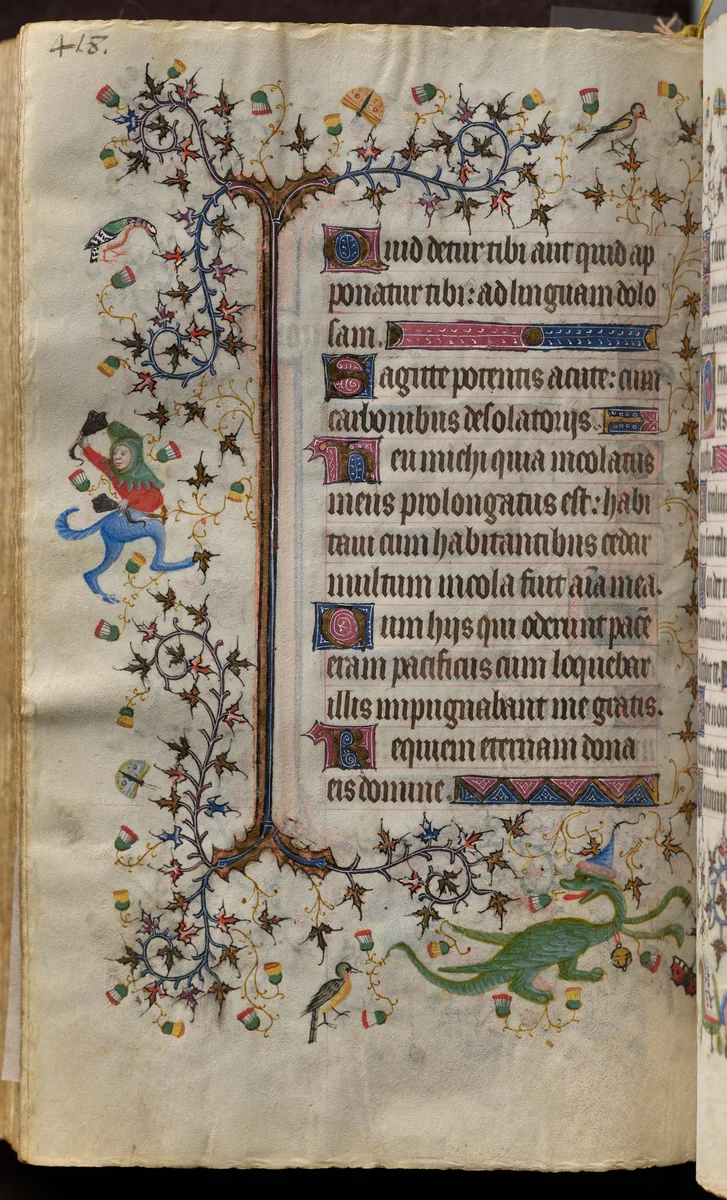 418.
Quid detur tibi aut quid ap
ponatur tibi: ad linguam dolo
sam.
Sagitte potentis acute: cum
carbonibus desolatoriis
Heu michi quia incolatus
meus prolongatus est: habi
taui cum habitantibus cedar
multum incola fuit aĩa mea.
Cum hiis qui oderunt pacẽ
eram pacificus cum loquebar
illis impugnabant me gratis.
Requiem eternam dona
eis domine.